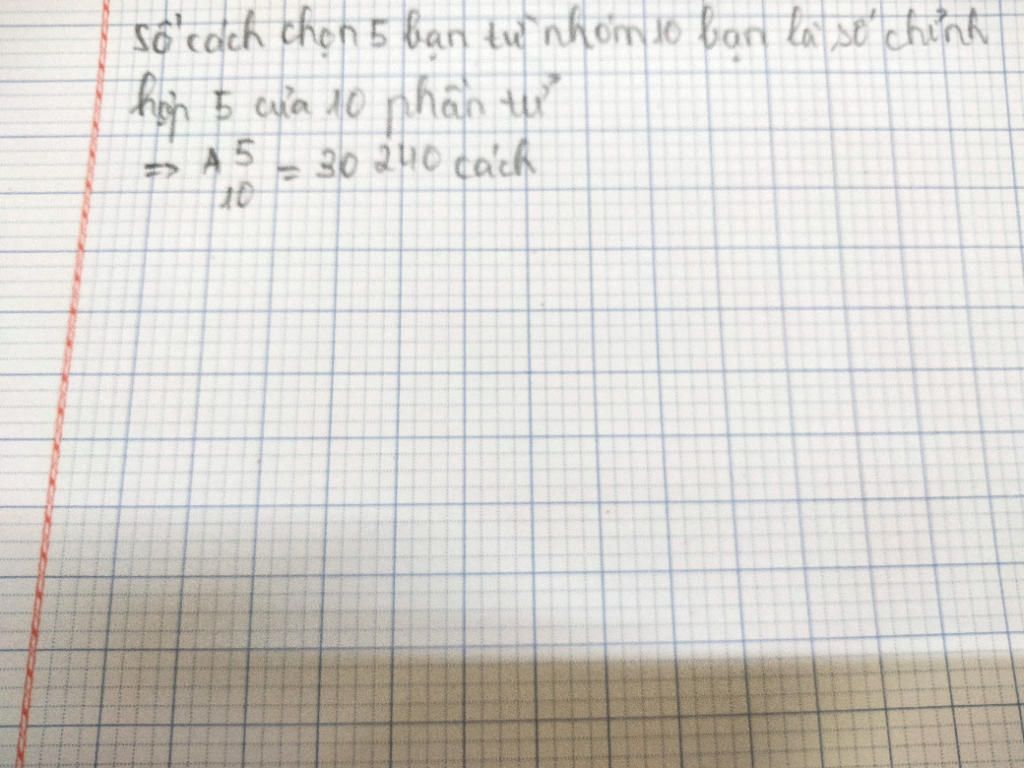 số cách chọn 5 bạn từ nhóm 10 bạn là số chỉnh
hợp 5 của 10 phần tử
=> A 5 10 = 30 240 cách